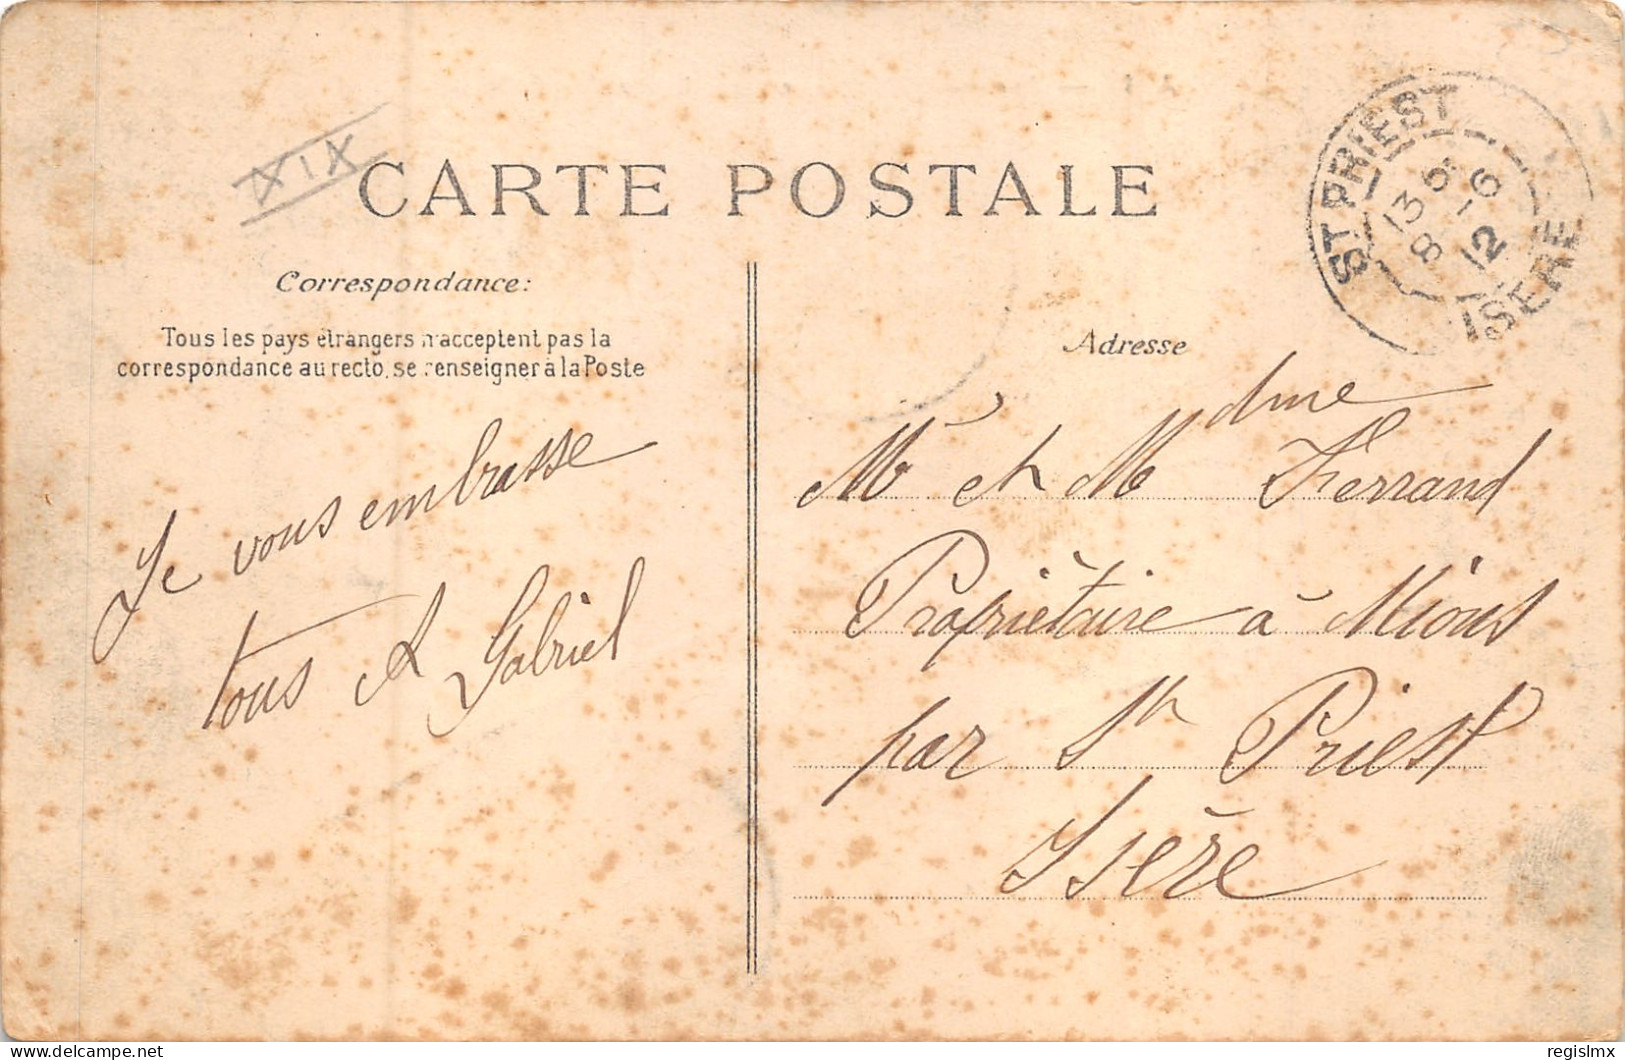 XIX
CARTE POSTALE
ST PRIEST
8 13
12 -6
ISERE
Correspondance:
Tous les pays étrangers n'acceptent pas la
correspondance au recto, se renseigner à la Poste
Je vous embrasse
tous
Gabriel
Adresse
Mr et Mdme Ferrand
Propriétaire à Mions
par St Priest
Isère
delcampe.net
regislmx